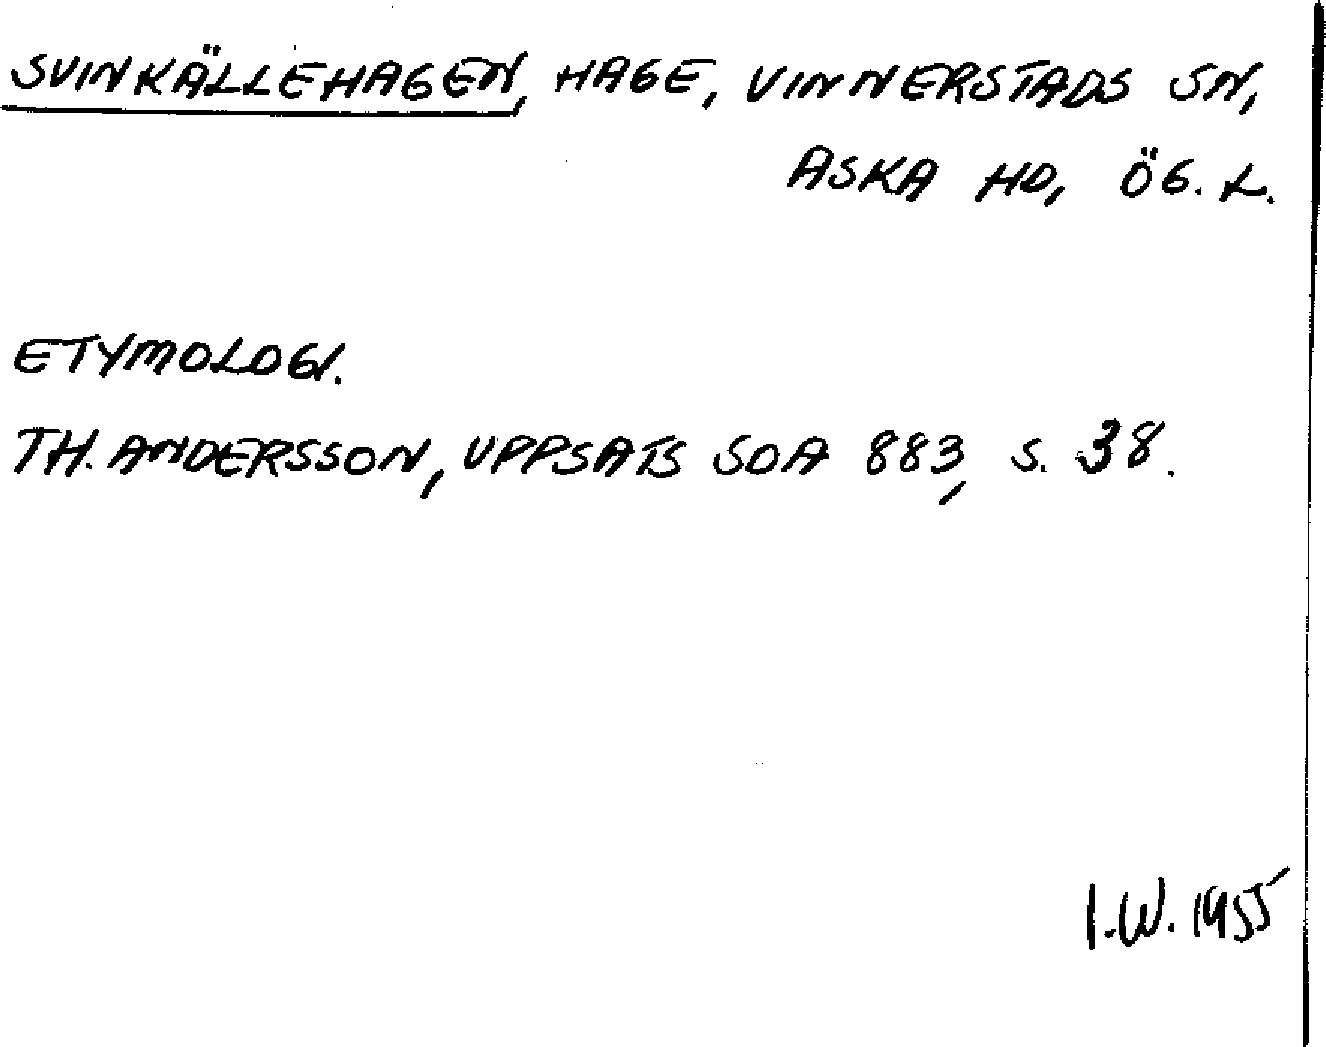 SVINKÄLLEHAGEN, HAGE, VINNERSTADS SN,
ASKA HD, ÖG. L.
ETYMOLOGI.
TH. ANDERSSON, UPPSATS SOA 883, S. 38.
I.W. 1955